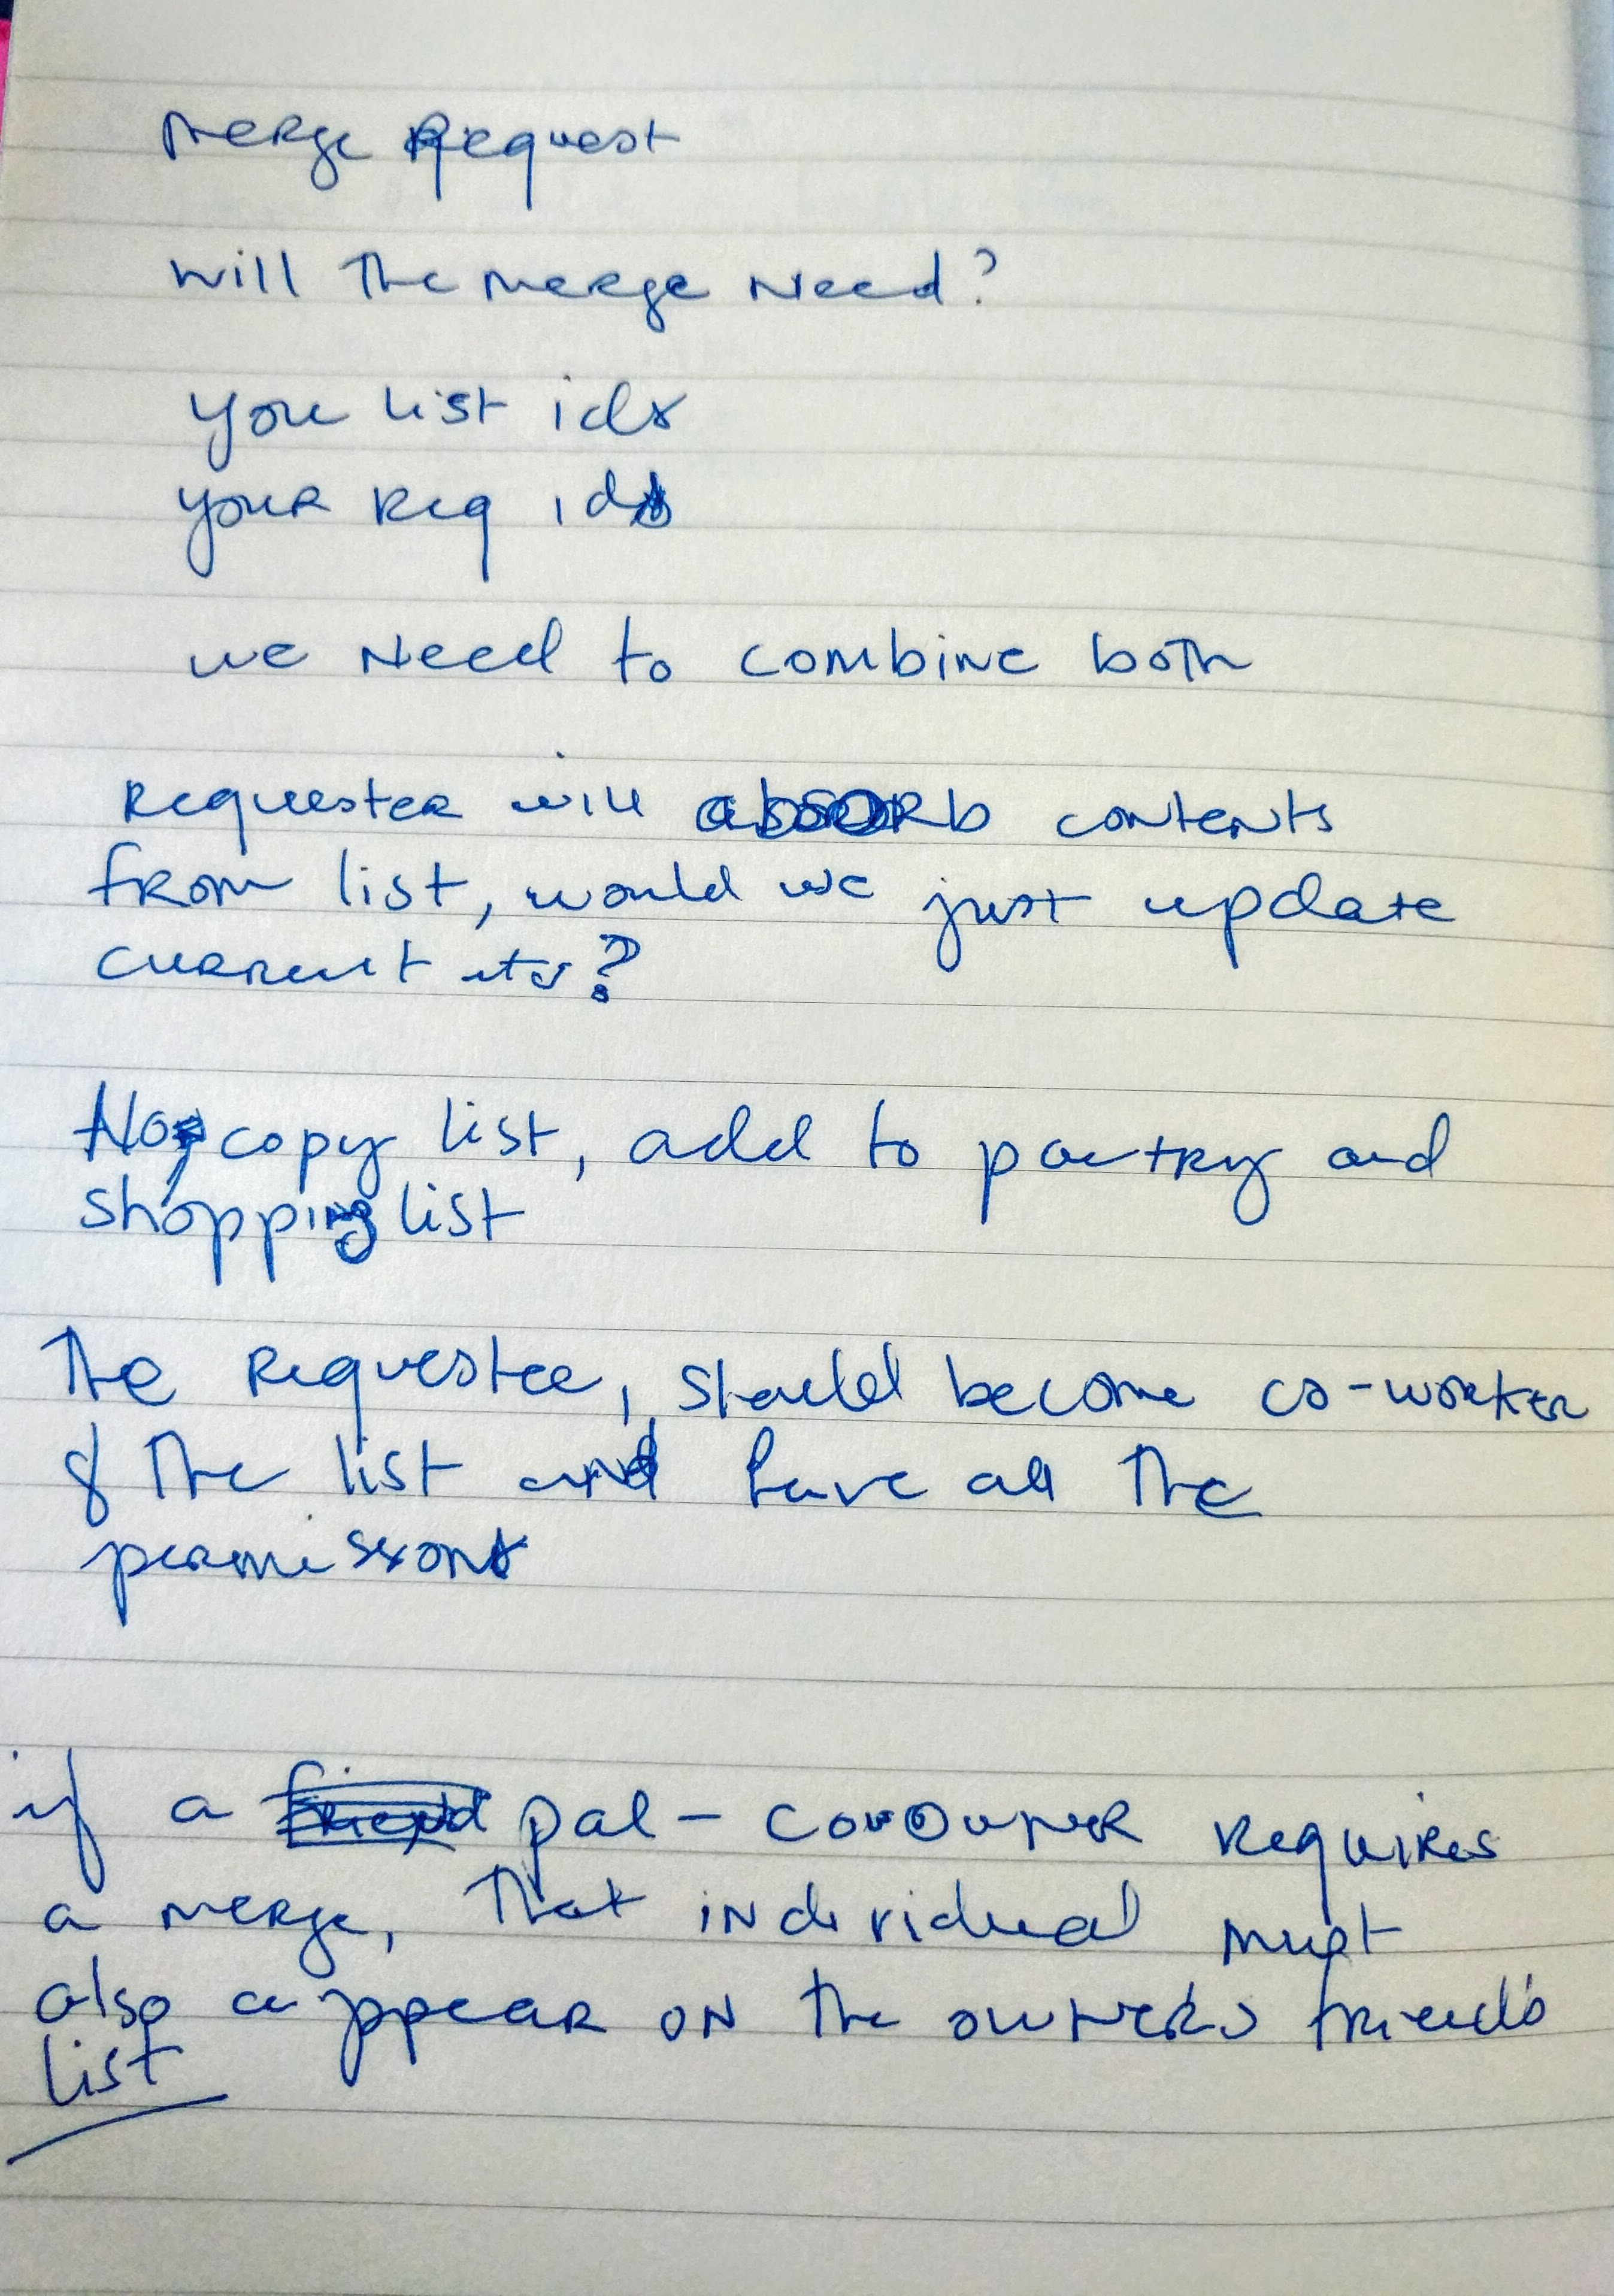 Merge Request
Will the merge need?
you list ids
your req ids
we need to combine both
Requester will absorb contents
from list, would we just update
current
No, copy list, add to pantry and
shopping list
The requestee, should become co-worker
of the list and have all the
permissions
if a pal - requires
a merge, that individual must
also appear on the owner's friend's
list